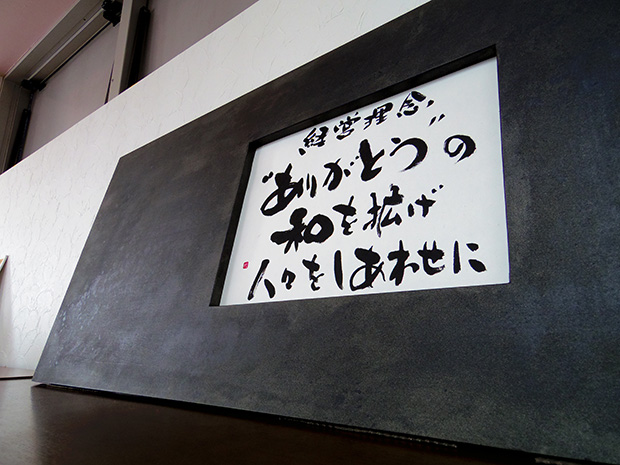 経営理念
"ありがとう"の
和を拡げ
人々をしあわせに